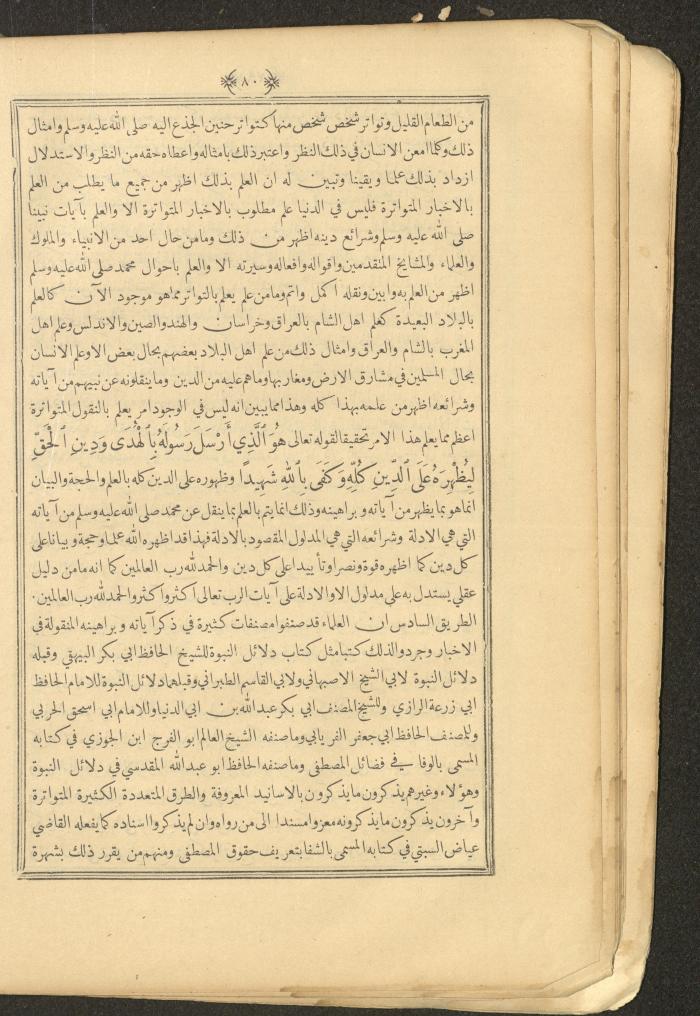 ٨٠
من الطعام القليل وتواتر شخص شخص منها كتواتر حنين الجذع اليه صلى الله عليه وسلم وامثال
ذلك وكلما امعن الانسان في ذلك النظر واعتبر ذلك بامثاله واعطاه حقه من النظر والاستدلال
ازداد بذلك علما ويقينا وتبين له ان العلم بذلك اظهر من جميع ما يطلب من العلم
بالاخبار المتواترة فليس في الدنيا علم مطلوب بالاخبار المتواترة الا والعلم بآيات نبينا
صلى الله عليه وسلم وشرائع دينه اظهر من ذلك ومامن حال احد من الانبياء والملوك
والعلماء والمشايخ المتقدمين واقواله وافعاله وسيرته الا والعلم باحوال محمد صلى الله عليه وسلم
اظهر من العلم به وابين ونقله اكمل واتم ومامن علم يعلم بالتواتر مماهو موجود الآن كالعلم
بالبلاد البعيدة كعلم اهل الشام بالعراق وخراسان والهند والصين والاندلس وعلم اهل
المغرب بالشام والعراق وامثال ذلك من علم اهل البلاد بعضهم بحال بعض الا وعلم الانسان
بحال المسلمين في مشارق الارض ومغاربها وماهم عليه من الدين وما ينقلونه عن نبيهم من آياته
وشرائعه اظهر من علمه بهذا كله وهذا ممايبين انه ليس في الوجود امر يعلم بالنقول المتواترة
اعظم مما يعلم هذا الامر تحقيقا لقوله تعالى هُوَ ٱلَّذِي أَرْسَلَ رَسُولَهُ بِٱلْهُدَى وَدِينِ ٱلْحَقِّ
لِيُظْهِرَهُ عَلَى ٱلدِّينِ كُلِّهِ وَكَفَى بِٱللهِ شَهِيدًا وظهوره على الدين كله بالعلم والحجة والبيان
انماهو بما يظهر من آياته وبراهينه وذلك انما يتم بالعلم بما ينقل عن محمد صلى الله عليه وسلم من آياته
التي هي الادلة وشرائعه التي هي المدلول المقصود بالادلة فهذا قد اظهره الله علما وحجة وبيانا على
كل دين كما اظهره قوة ونصرا وتأييدا على كل دين والحمد لله رب العالمين كما انه مامن دليل
عقلي يستدل به على مدلول الا والادلة على آيات الرب تعالى اكثر واكثر والحمد لله رب العالمين ·
الطريق السادس ان العلماء قد صنفوا مصنفات كثيرة في ذكر آياته وبراهينه المنقولة في
الاخبار وجردوا لذلك كتبا مثل كتاب دلائل النبوة للشيخ الحافظ ابي بكر البيهقي وقبله
دلائل النبوة لابي الشيخ الاصبهاني ولابي القاسم الطبراني وقبلهما دلائل النبوة للامام الحافظ
ابي زرعة الرازي وللشيخ المصنف ابي بكر عبد الله بن ابي الدنيا وللامام ابي اسحق الحربي
وللمصنف الحافظ ابي جعفر الفريابي وما صنفه الشيخ العالم ابو الفرج ابن الجوزي في كتابه
المسمى بالوفا في فضائل المصطفى وما صنفه الحافظ ابو عبد الله المقدسي في دلائل النبوة
وهؤلاء وغيرهم يذكرون مايذكرون بالاسانيد المعروفة والطرق المتعددة الكثيرة المتواترة
وآخرون يذكرون مايذكرونه معزوا مسندا الى من رواه وان لم يذكروا اسناده كما يفعله القاضي
عياض السبتي في كتابه المسمى بالشفا بتعريف حقوق المصطفى ومنهم من يقرر ذلك بشهرة